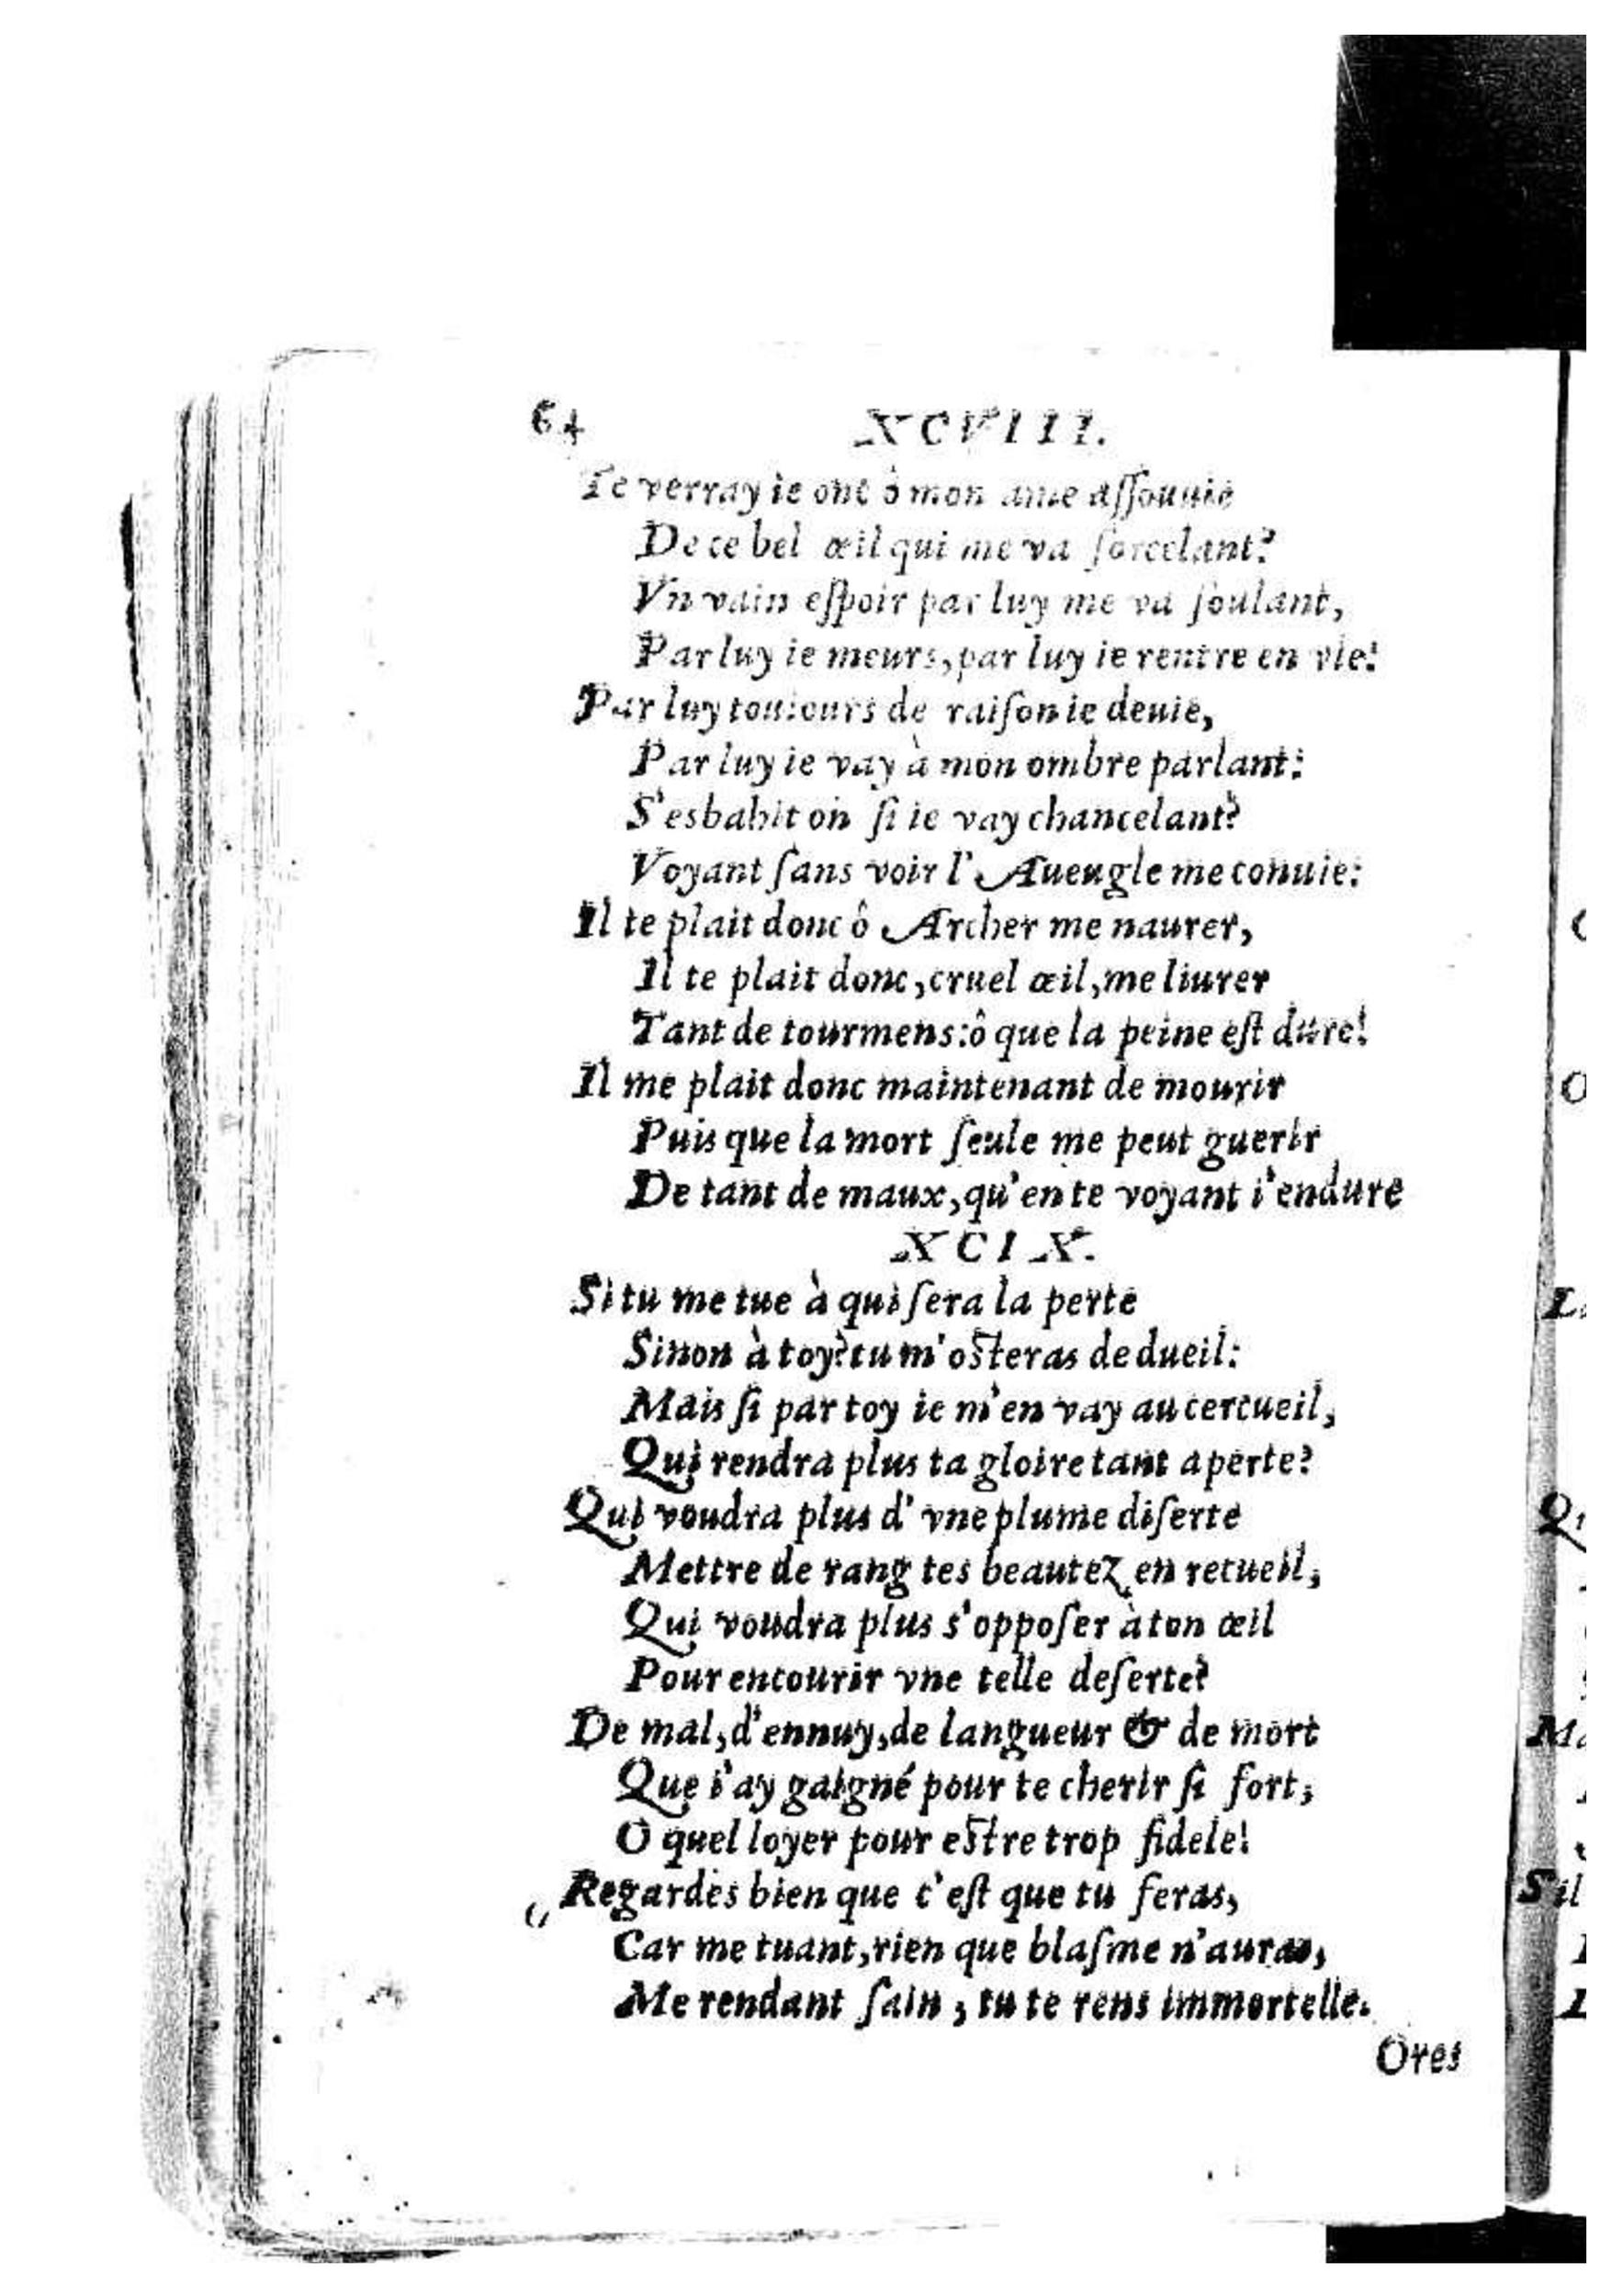 64 XCVIII.
Te verray ie onc ô mon ame aſſouuie
De ce bel œil qui me va ſorcelant?
Vn vain eſpoir par luy me va ſoulant,
Par luy ie meurs, par luy ie rentre en vie!
Par luy touiours de raiſon ie deuie,
Par luy ie vay à mon ombre parlant:
S'esbahit on ſi ie vay chancelant?
Voyant ſans voir l'Aueugle me conuie:
Il te plait donc ô Archer me naurer,
Il te plait donc, cruel œil, me liurer
Tant de tourmens: ô que la peine eſt dure!
Il me plait donc maintenant de mourir
Puis que la mort ſeule me peut guerir
De tant de maux, qu'en te voyant i'endure
XCIX.
Si tu me tue à qui ſera la perte
Sinon à toy? tu m'oſteras de dueil:
Mais ſi par toy ie m'en vay au cercueil,
Qui rendra plus ta gloire tant aperte?
Qui voudra plus d'vne plume diſerte
Mettre de rang tes beautez en recueil,
Qui voudra plus s'oppoſer à ton œil
Pour encourir vne telle deſerte?
De mal, d'ennuy, de langueur & de mort
Que i'ay gaigné pour te cherir ſi fort,
O quel loyer pour eſtre trop fidele!
Regardes bien que c'eſt que tu feras,
Car me tuant, rien que blaſme n'auras,
Me rendant ſain, tu te rens immortelle.
Ores